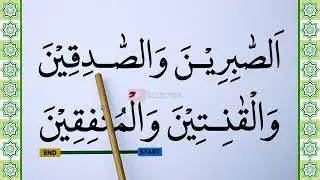 اَلصّٰبِرِيْنَ وَالصّٰدِقِيْنَ
وَالْقٰنِتِيْنَ وَالْمُنْفِقِيْنَ
END START